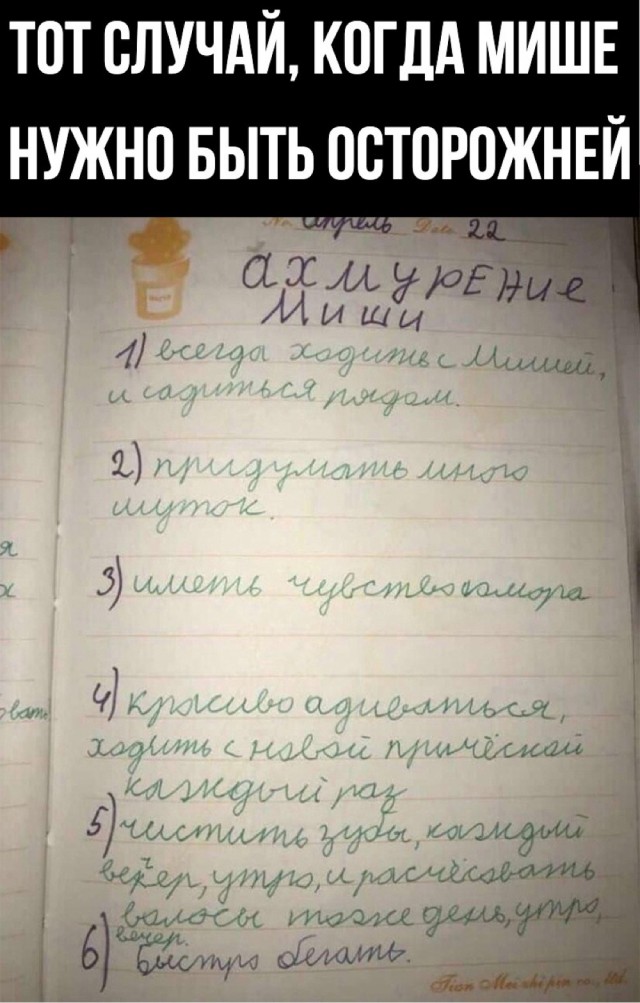 ТОТ СЛУЧАЙ, КОГДА МИШЕ
НУЖНО БЫТЬ ОСТОРОЖНЕЙ
No Апрель Date 22
ахмурЕние
Миши
1) всегда ходить с Мишей,
и садиться рядом.
2) придумать много
шуток.
3) иметь чувство юмора
4) красиво адиваться,
ходить с новой причёской
каждый раз
5) чистить зубы, каждый
вечер, утро, и расчёсовать
волосы тоже день, утро,
вечер.
6) Быстро бегать.
я
х
овать